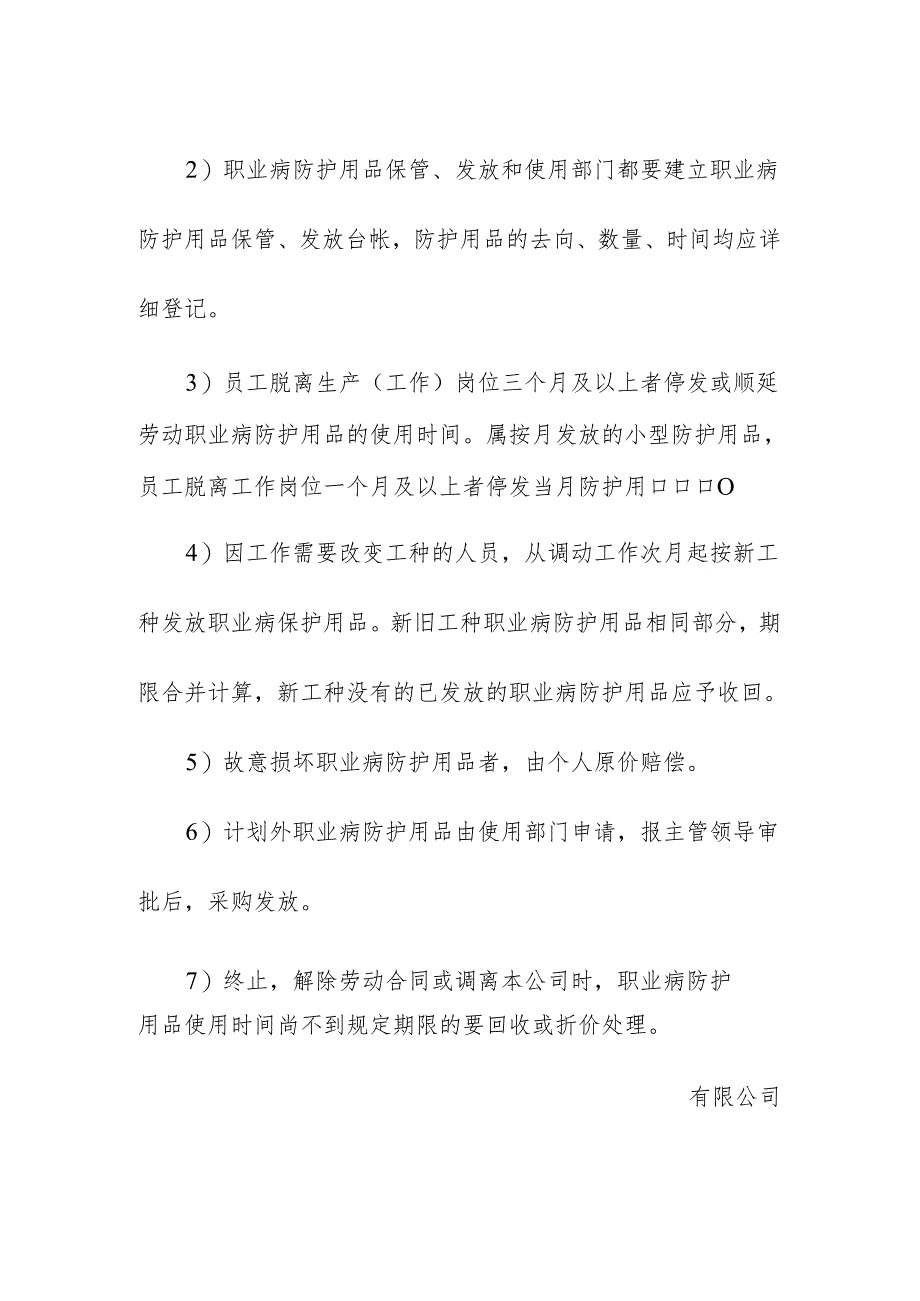 2）职业病防护用品保管、发放和使用部门都要建立职业病
防护用品保管、发放台帐，防护用品的去向、数量、时间均应详
细登记。
3）员工脱离生产（工作）岗位三个月及以上者停发或顺延
劳动职业病防护用品的使用时间。属按月发放的小型防护用品，
员工脱离工作岗位一个月及以上者停发当月防护用口口口O
4）因工作需要改变工种的人员，从调动工作次月起按新工
种发放职业病保护用品。新旧工种职业病防护用品相同部分，期
限合并计算，新工种没有的已发放的职业病防护用品应予收回。
5）故意损坏职业病防护用品者，由个人原价赔偿。
6）计划外职业病防护用品由使用部门申请，报主管领导审
批后，采购发放。
7）终止，解除劳动合同或调离本公司时，职业病防护
用品使用时间尚不到规定期限的要回收或折价处理。
有限公司